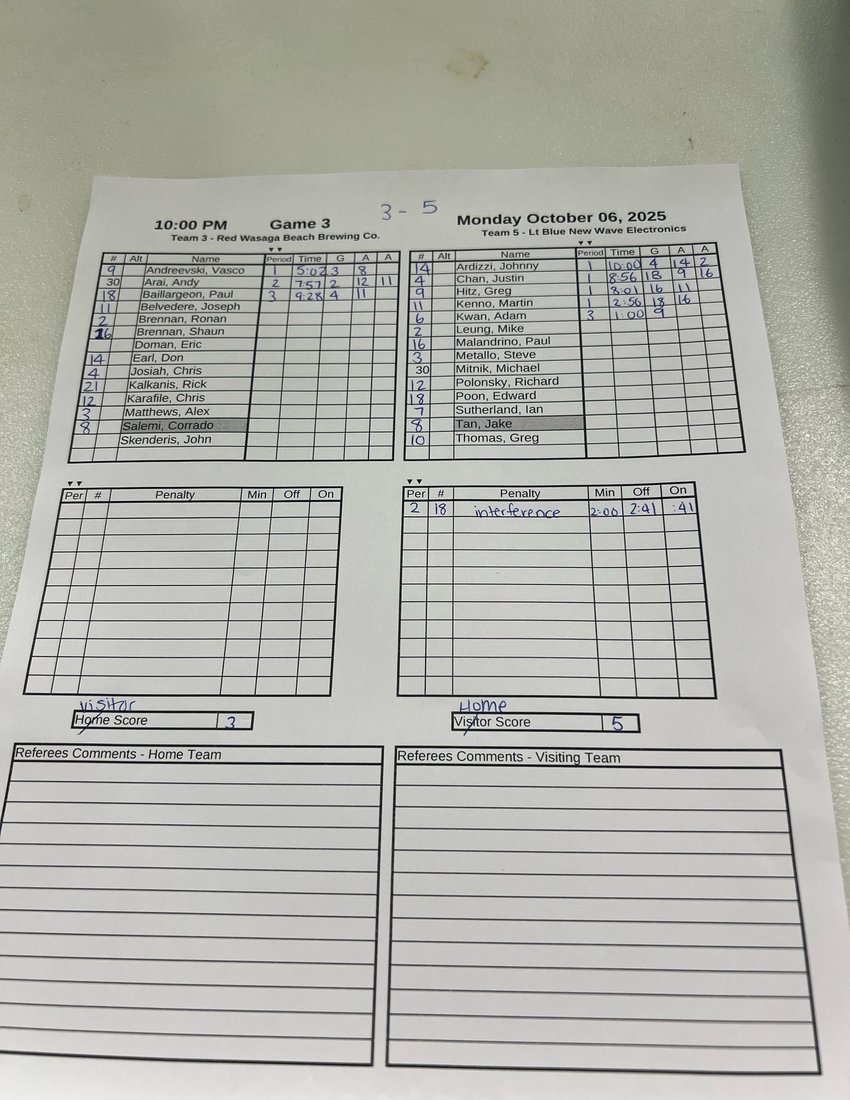 3 - 5
10:00 PM Game 3 Monday October 06, 2025
Team 3 - Red Wasaga Beach Brewing Co. Team 5 - Lt Blue New Wave Electronics
# Alt Name Period Time G A A
9 Andreevski, Vasco 1 5:02 3 8
30 Arai, Andy 2 7:57 2 12 11
18 Baillargeon, Paul 3 9:28 4 11
11 Belvedere, Joseph
2 Brennan, Ronan
16 Brennan, Shaun
Doman, Eric
14 Earl, Don
4 Josiah, Chris
21 Kalkanis, Rick
12 Karafile, Chris
3 Matthews, Alex
8 Salemi, Corrado
Skenderis, John
# Alt Name Period Time G A A
14 Ardizzi, Johnny 1 10:00 4 14 2
4 Chan, Justin 1 8:56 18 9 16
9 Hitz, Greg 1 8:01 16 11
11 Kenno, Martin 1 2:56 18 16
6 Kwan, Adam 3 1:00 9
2 Leung, Mike
16 Malandrino, Paul
3 Metallo, Steve
30 Mitnik, Michael
12 Polonsky, Richard
18 Poon, Edward
7 Sutherland, Ian
8 Tan, Jake
10 Thomas, Greg
Per # Penalty Min Off On
Per # Penalty Min Off On
2 18 interference 2:00 2:41 :41
visitor
Home Score 3
Home
Visitor Score 5
Referees Comments - Home Team
Referees Comments - Visiting Team